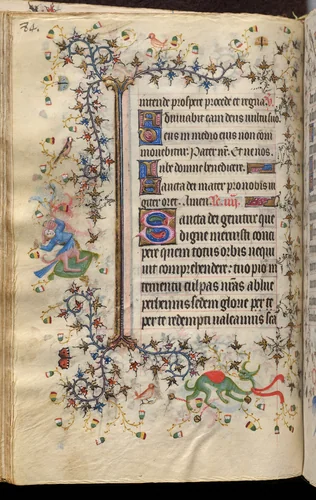 intende prospere procede et regna. V.
Adiuvabit eam deus vultu suo.
Deus in medio eius non com
movebitur. Pater nr. Et ne nos.
Iube domne benedicere.
Sancta dei mater pro nobis iu
giter oret. Amen.
Sancta dei genitrix que
digne meruisti conci
pere quem totus orbis nequi
uit comprehendere: tuo pio in
teruentu culpas nras ablue
perhennis sedem glorie per te
per te redempti ualeamus sca